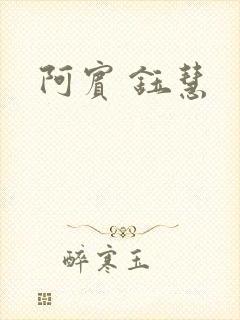 阿賓鈺慧
醉寒玉